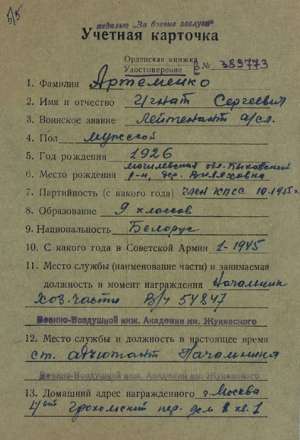 б/5
медалью „За боевые заслуги"
Учетная карточка
Орденская книжка
Удостоверение Б № 383773
1. Фамилия Артеменко
2. Имя и отчество Игнат Сергеевич
3. Воинское звание Лейтенант а/сл.
4. Пол мужской
5. Год рождения 1926
могилевская обл.
6. Место рождения р-н, дер.
7. Партийность (с какого года) член КПСС 10.
8. Образование 9 классов
9. Национальность Белорус
10. С какого года в Советской Армии 1-1945
11. Место службы (наименование части) и занимаемая
должность в момент награждения Начальник
хоз. части В/ч 54847
Военно-Воздушной инж. Академии им. Жуковского
12. Место службы и должность в настоящее время
ст. адъютант Начальника
Военно-Воздушной инж. Академии им. Жуковского
13. Домашний адрес награжденного г. Москва
Грохольский пер. дом кв. 1